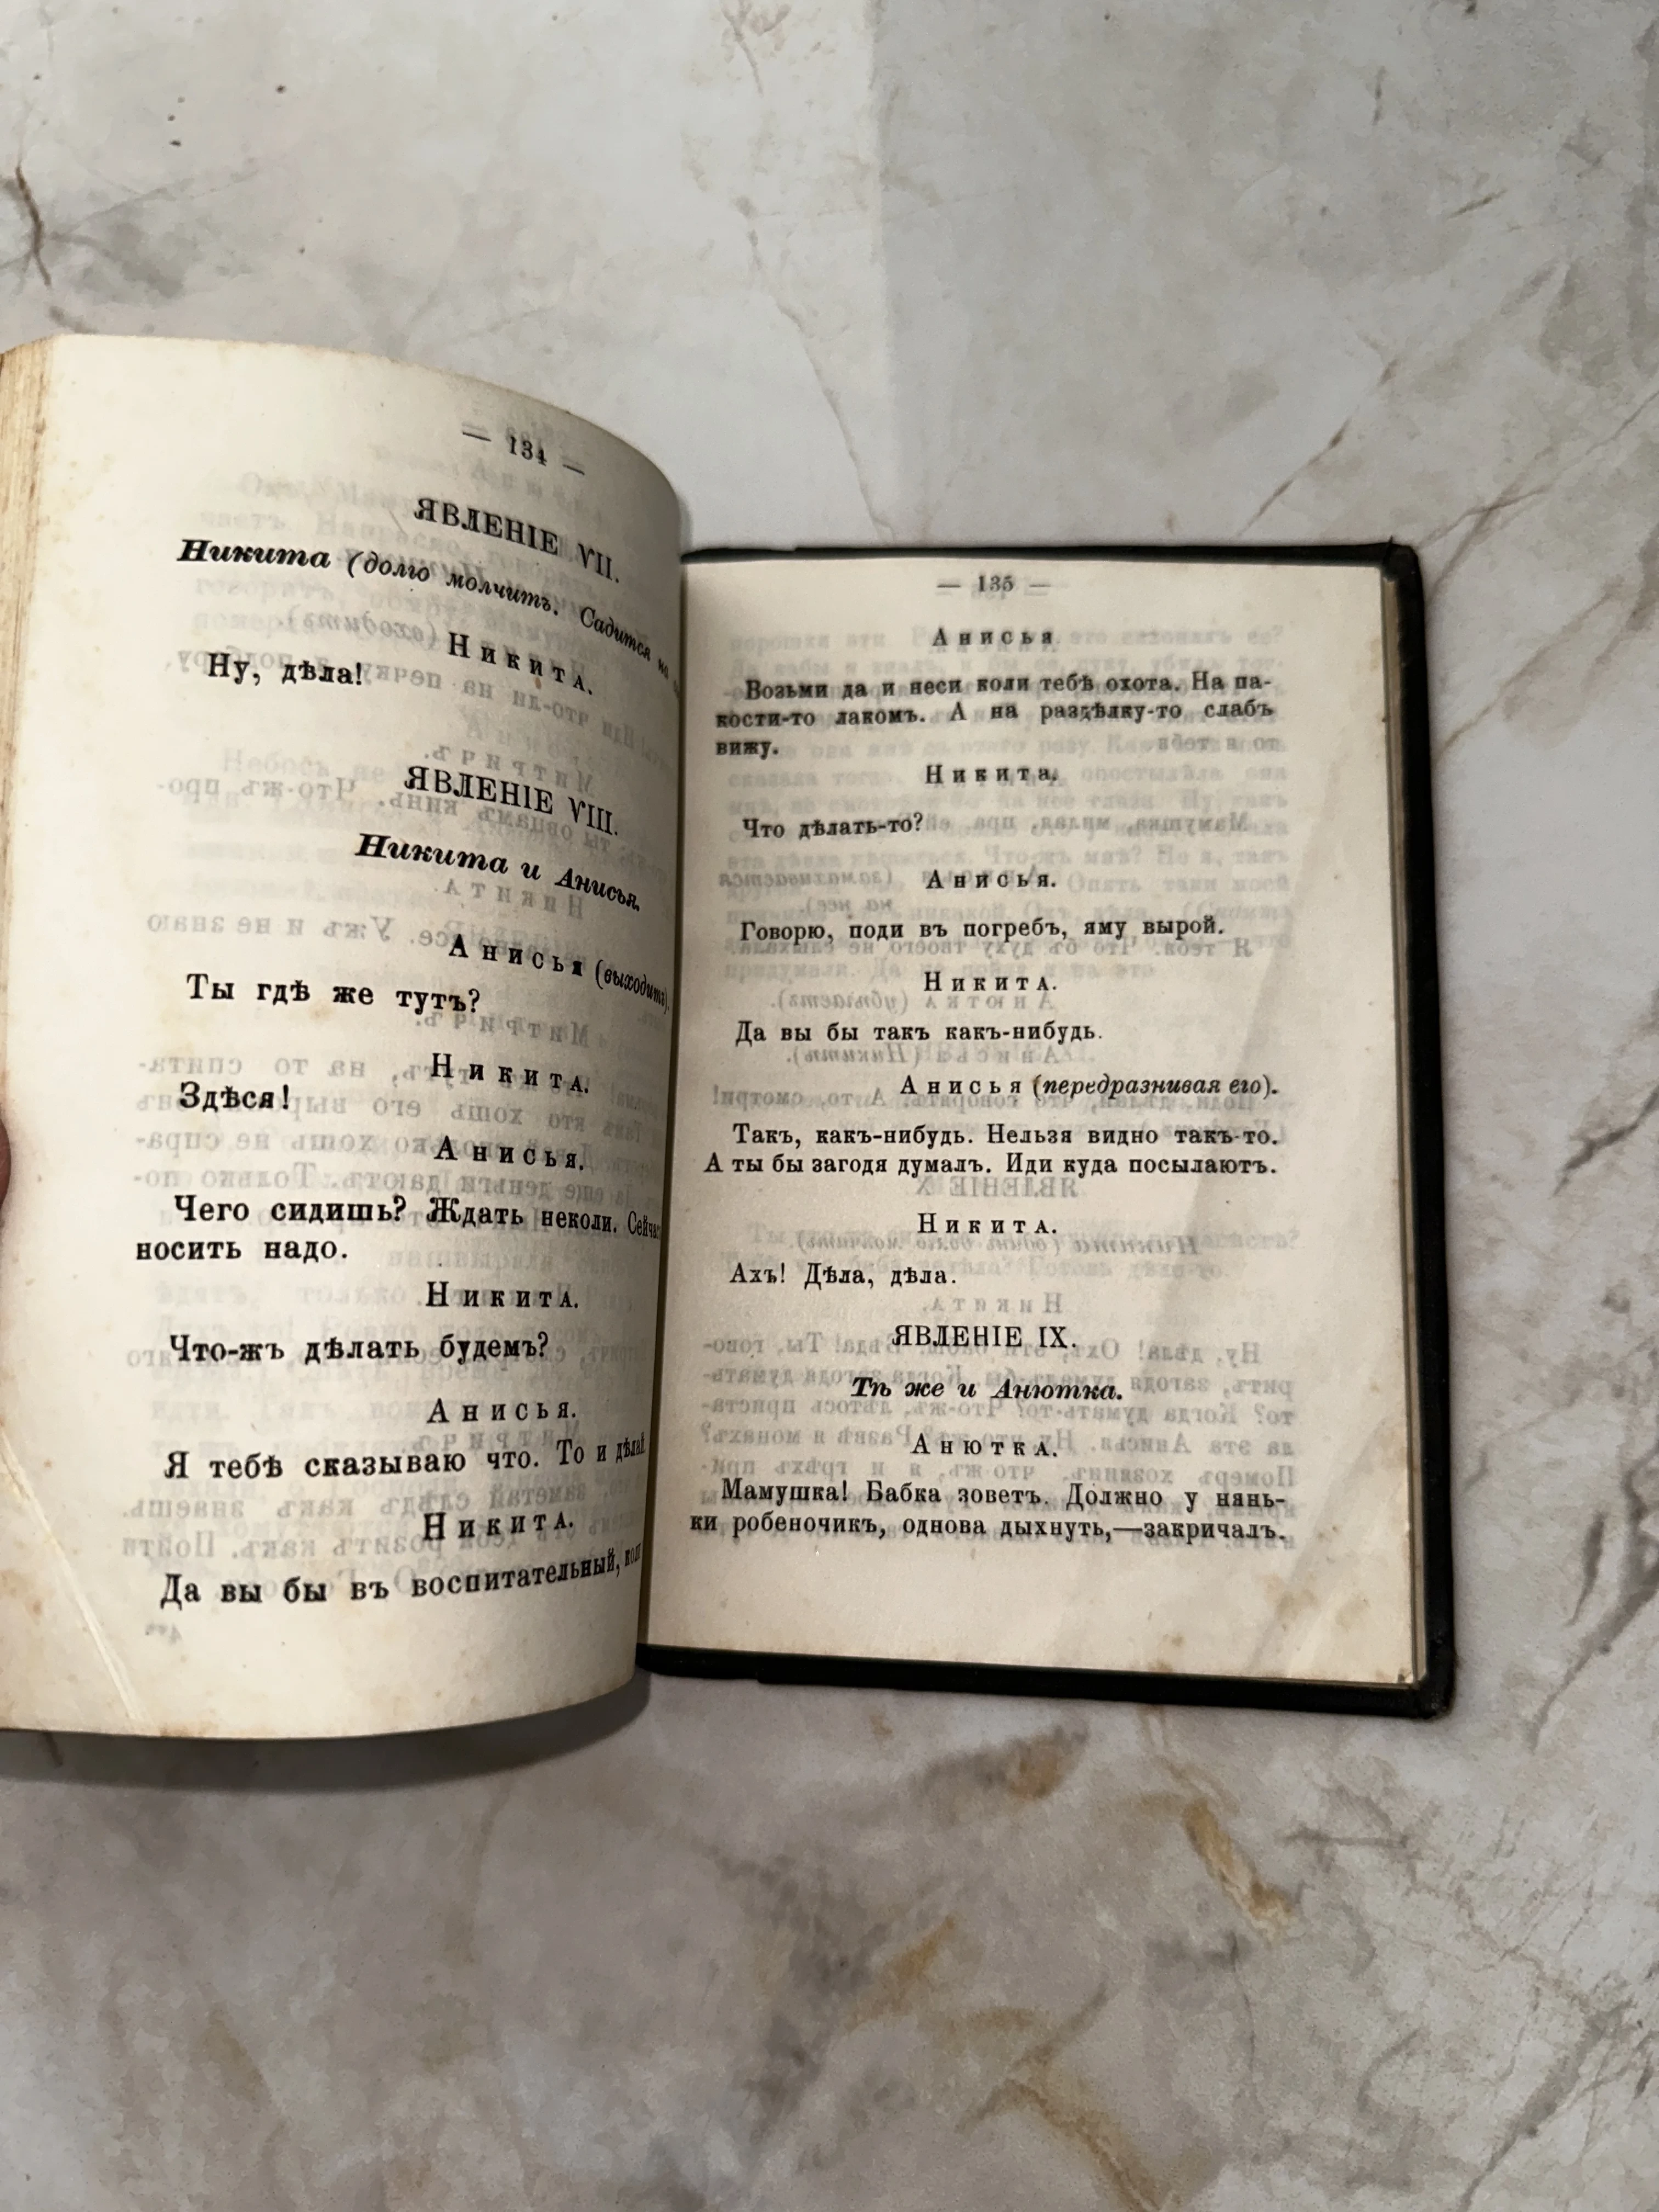 — 134 —
ЯВЛЕНІЕ VII.
Никита (долго молчитъ. Садится
Никита.
Ну, дѣла!
ЯВЛЕНІЕ VIII.
Никита и Анисья.
Анисья (выходитъ).
Ты гдѣ же тутъ?
Никита.
Здѣся!
Анисья.
Чего сидишь? Ждать неколи. Сейча
носить надо.
Никита.
Что-жъ дѣлать будемъ?
Анисья.
Я тебѣ сказываю что. То и дѣлай
Никита.
Да вы бы въ воспитательный,
— 135 —
Анисья
Возьми да и неси коли тебѣ охота. На па-
кости-то лакомъ. А на раздѣлку-то слабъ
вижу.
Никита.
Что дѣлать-то?
Анисья.
Говорю, поди въ погребъ, яму вырой.
Никита.
Да вы бы такъ какъ-нибудь.
Анисья (передразнивая его).
Такъ, какъ-нибудь. Нельзя видно такъ-то.
А ты бы загодя думалъ. Иди куда посылаютъ.
Никита.
Ахъ! Дѣла, дѣла.
ЯВЛЕНІЕ IX.
Тѣ же и Анютка.
Анютка.
Мамушка! Бабка зоветъ. Должно у нянь-
ки робеночикъ, однова дыхнуть,—закричалъ.